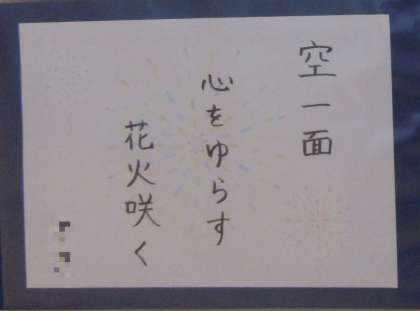 空一面
心をゆらす
花火咲く